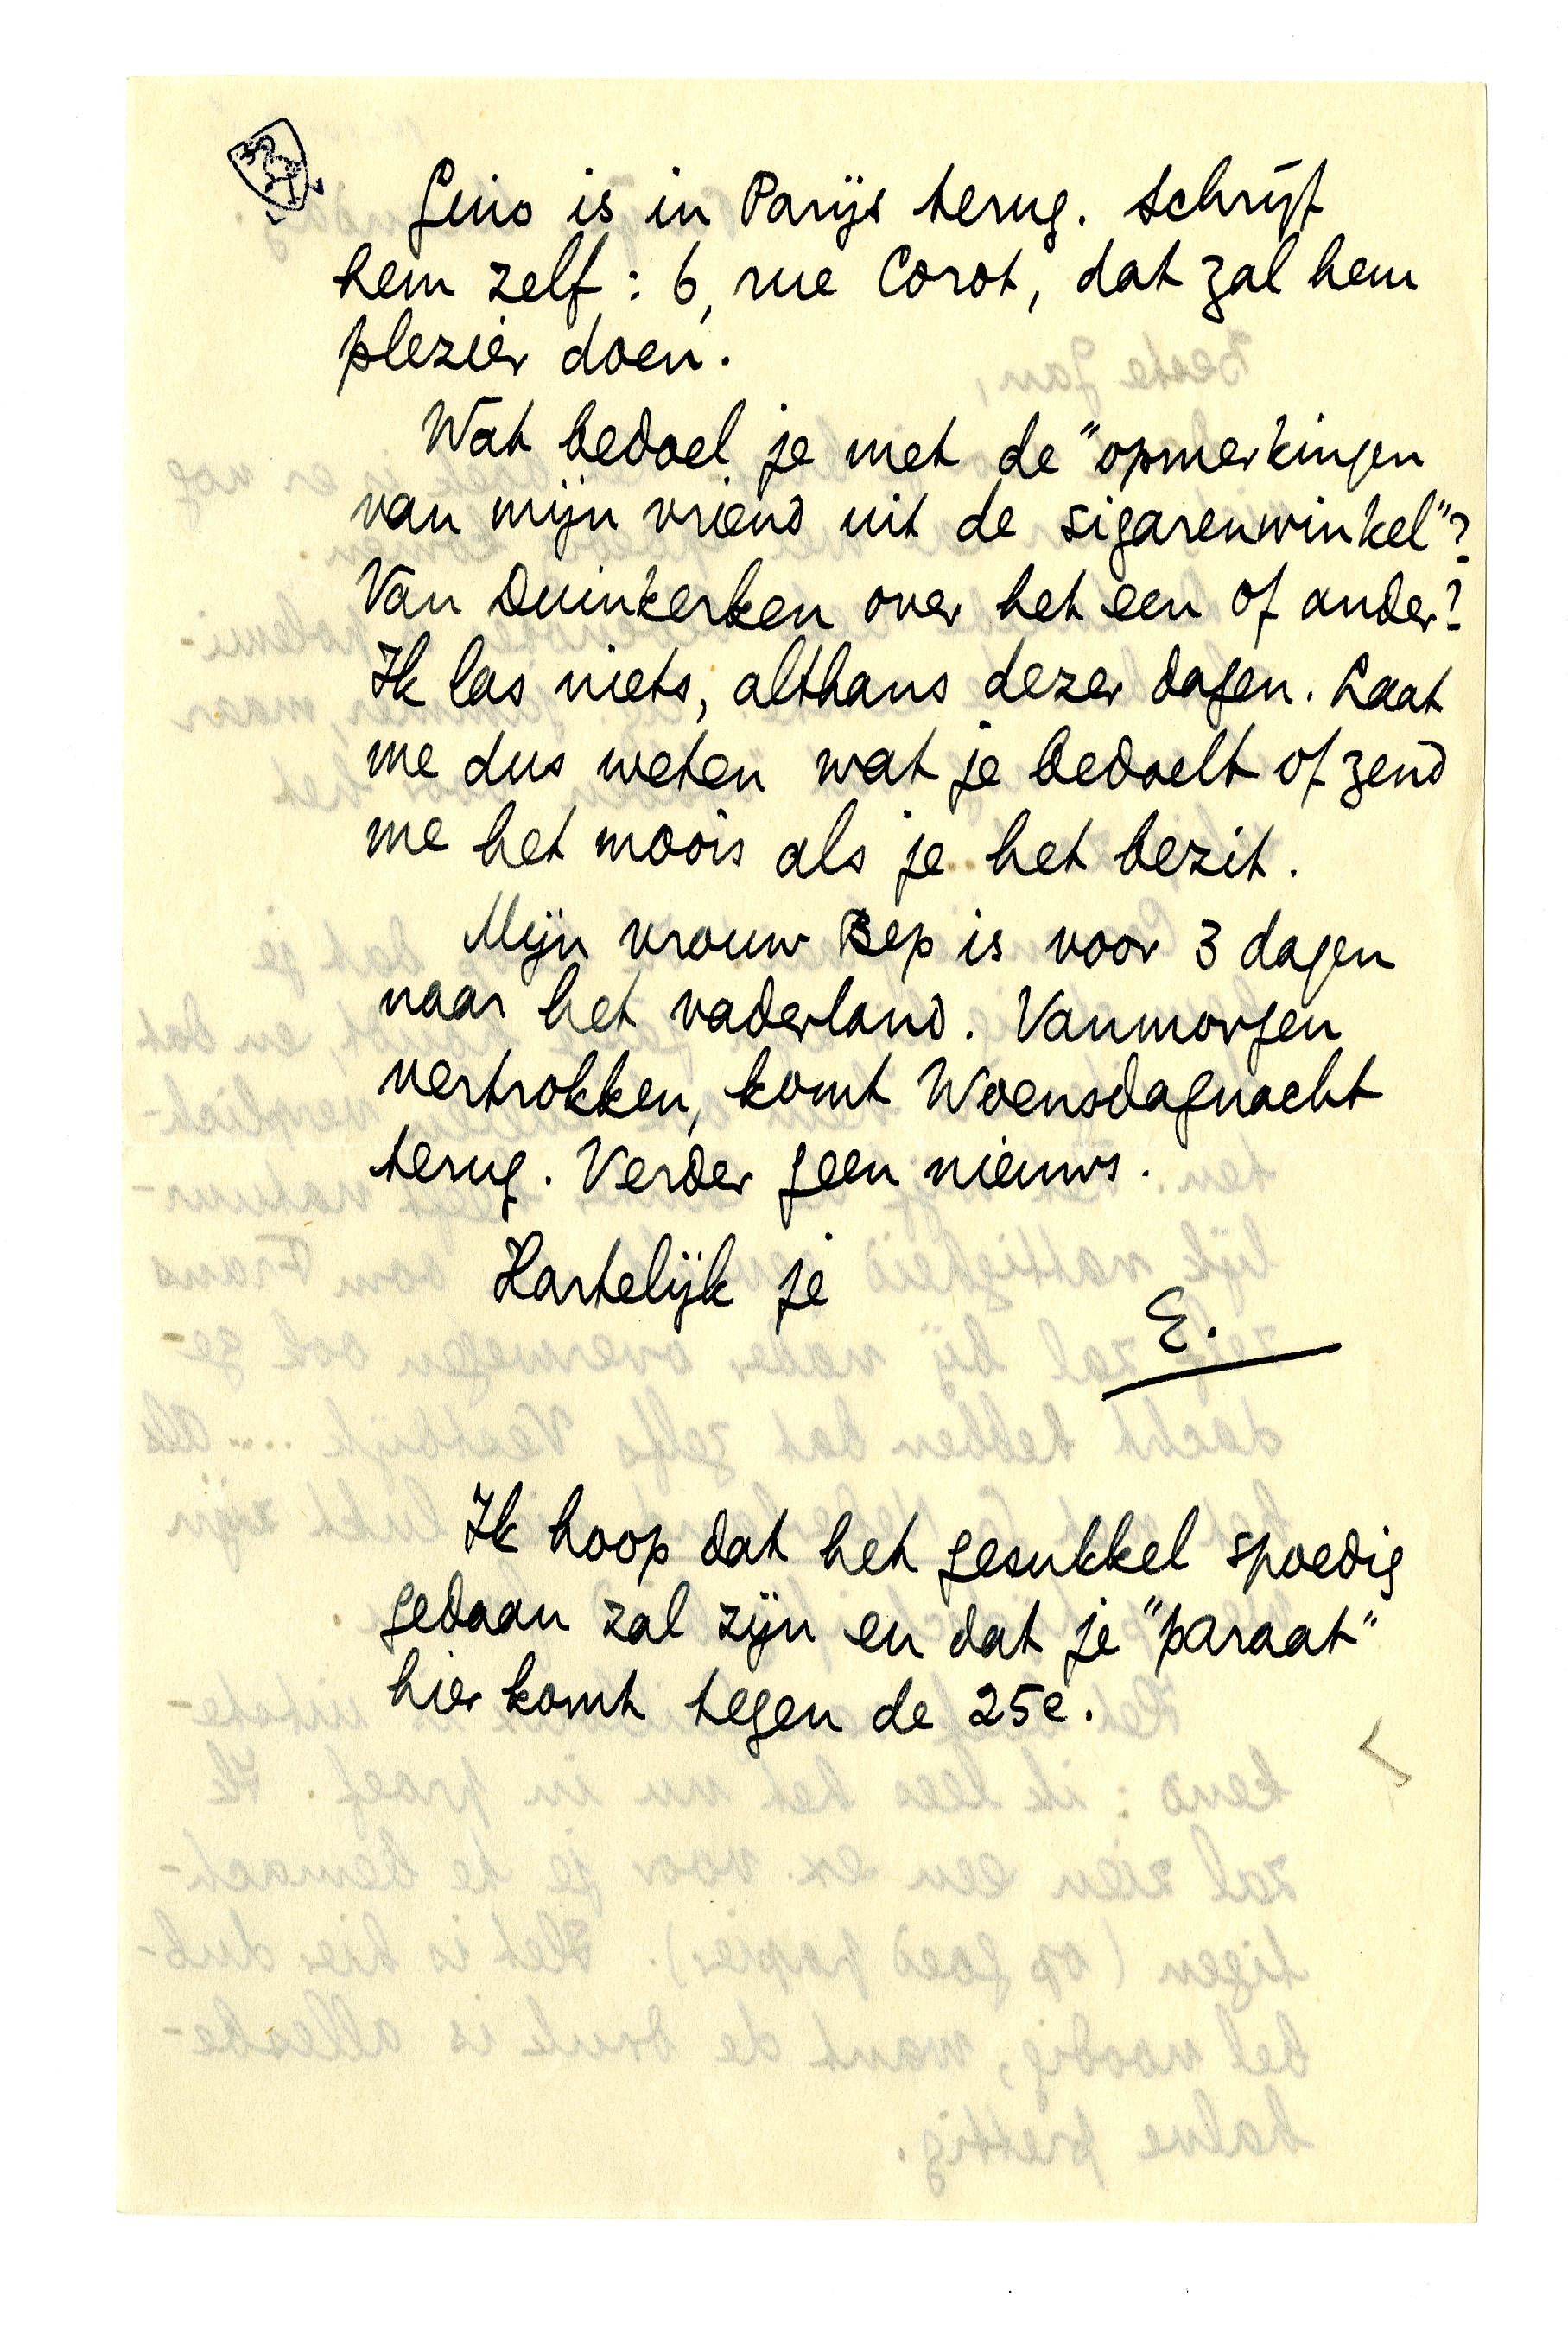 Gino is in Parijs terug. Schrijf
hem zelf: 6, rue Corot, dat zal hem
plezier doen.
Wat bedoel je met de "opmerkingen
van mijn vriend uit de sigarenwinkel"?
Van Duinkerken over het een of ander?
Ik las niets, althans dezer dagen. Laat
me dus weten wat je bedoelt of zend
me het moois als je het bezit.
Mijn vrouw Bep is voor 3 dagen
naar het vaderland. Vanmorgen
vertrokken, komt Woensdagnacht
terug. Verder geen nieuws.
Hartelijk je
E.
Ik hoop dat het gesukkel spoedig
gedaan zal zijn en dat je "paraat"
hier komt tegen de 25e.